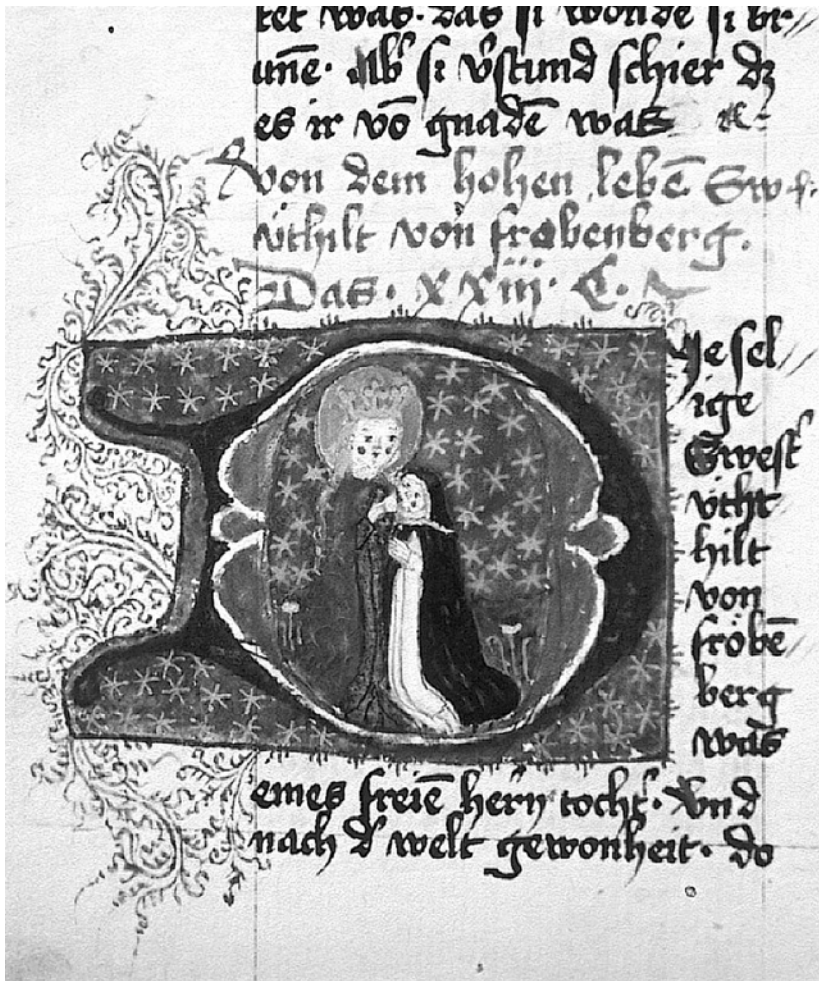 tet was. das si wonde si br//
unne. Alb si v̓stund schier dz
es ir vō gnadē was
von dem hohen lebē Sw
uthilt von frobenberg.
Das. XXiii. C.
ie sel//
ige
Swest̓
vtht
hilt
von
fröbē//
berg
was
eines freiē hern̄ tocht̓. Vnd
nach d̓ welt gewonheit. do